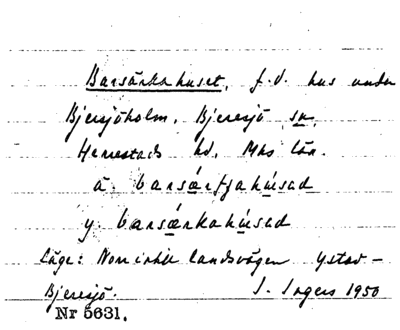 Barsärkahuset, f.d. hus under
Bjersjöholm, Bjeresjö sn,
Herrestads hd, Mhs län.
ä. barsǽrfjahúsəd
y. barsǽrkahúsəd
Läge: Norr intill landsvägen Ystad –
Bjeresjö. I. Ingers 1950
Nr 5631.